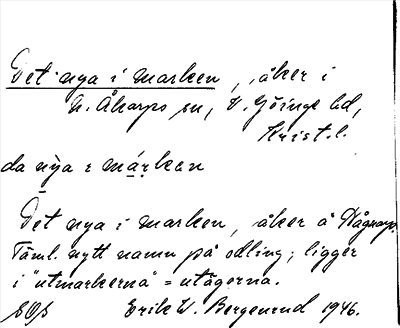 Det nya i marken, åker i
N. Åkarps sn, V. Göinge hd,
Krist. l.
da nỳa i márken
Det nya i marken, åker å Hågnarp.
Täml. nytt namn på odling; ligger
i "utmarkerna" = utägorna.
Erik W. Bergenrud 1946.